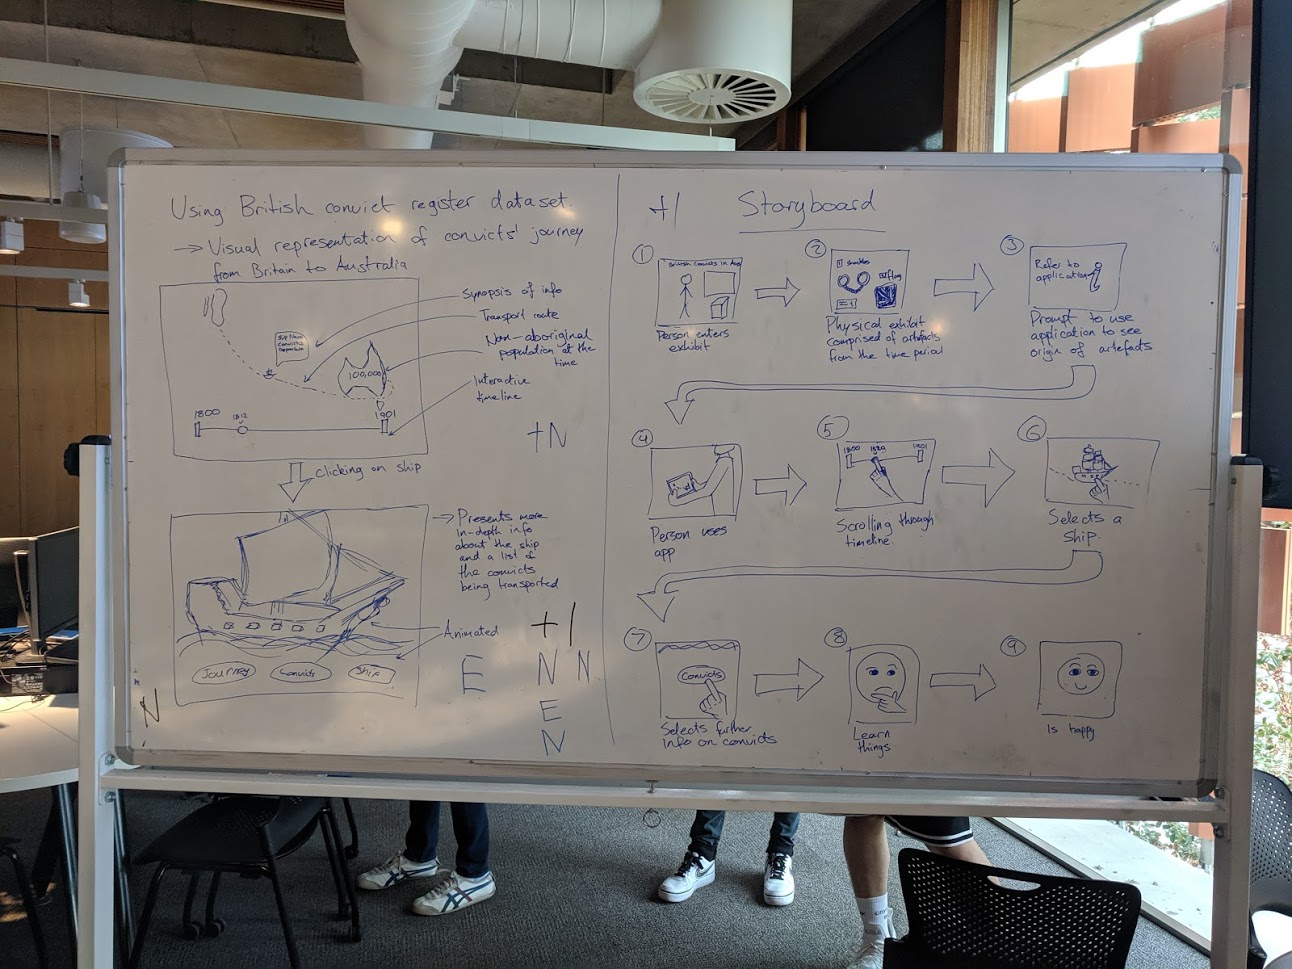 Using British convict register dataset
→ Visual representation of convicts' journey
from Britain to Australia
Synopsis of info
Transport route
Non-aboriginal
population at the
time
Interactive
timeline
100,000
1800
1812
1901
+N
Clicking on ship
→ Presents more
in-depth info
about the ship
and a list of
the convicts
being transported
Animated
Journey
Convicts
Ship
+1
E N N
E
N
N
+1 Storyboard
1
British Convicts in Aus
Person enters
exhibit
2
shackles
flag
Physical exhibit
comprised of artefacts
from the time period
3
Refer to
application
Prompt to use
application to see
origin of artefacts
4
Person uses
app
5
1800
1901
Scrolling through
timeline.
6
Selects a
ship.
7
Convicts
Selects further
info on convicts
8
Learn
things
9
Is happy